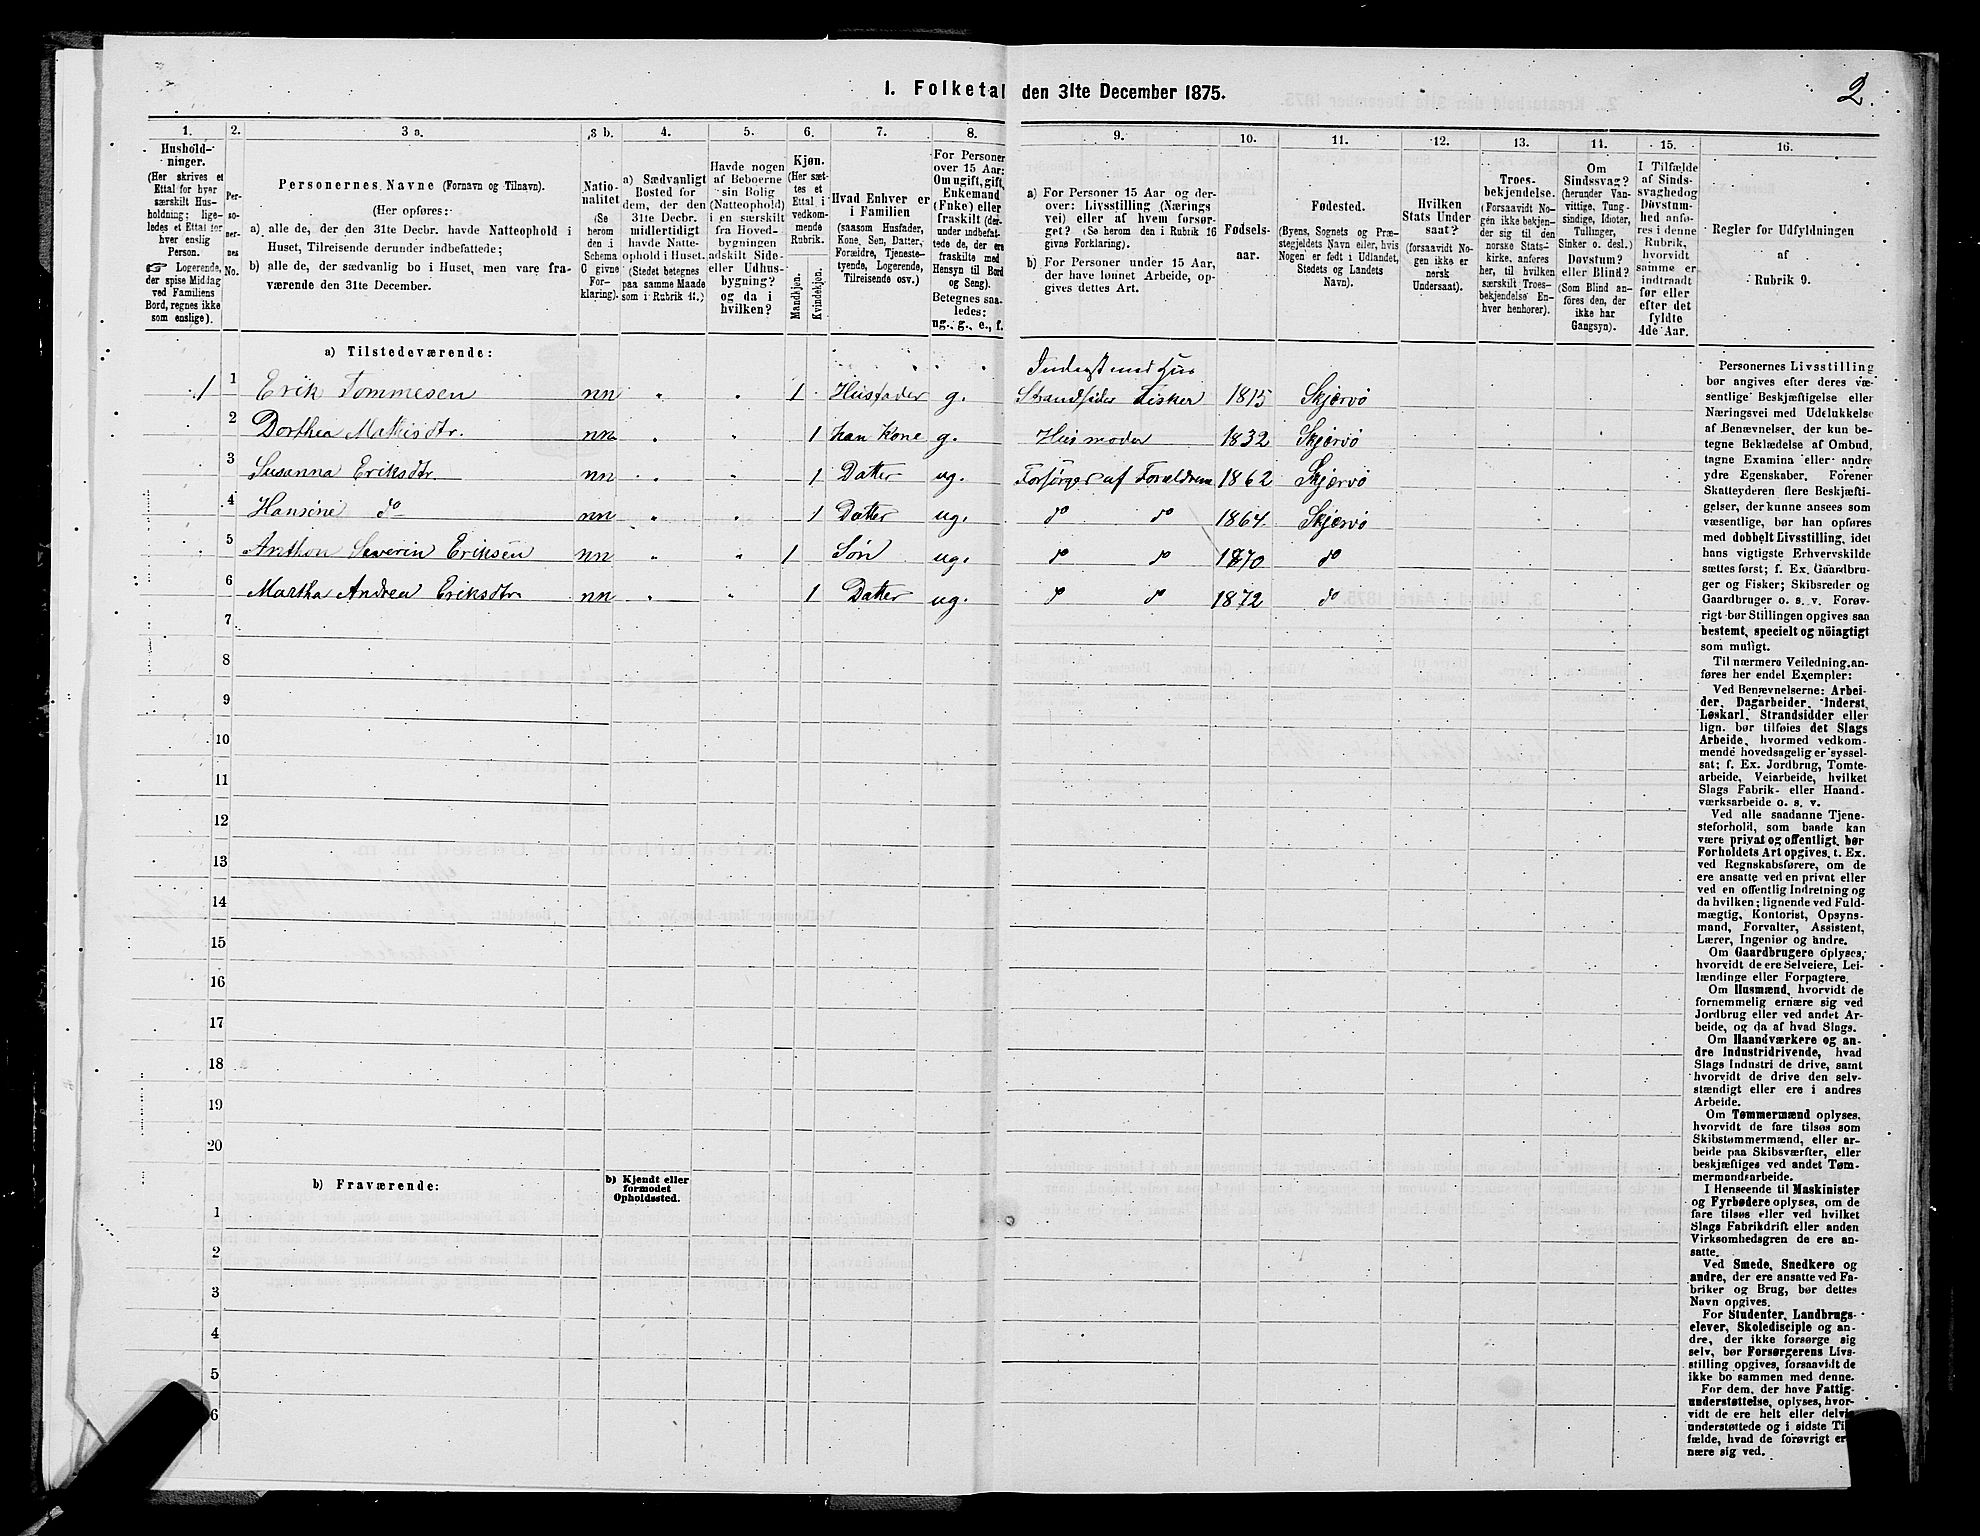 I. Folketal den 31te December 1875.
2.
1. 2. 3 a. 3 b. 4. 5. 6. 7. 8. 9. 10. 11. 12. 13. 14. 15. 16.
Husholdninger.
(Her skrives et
Ettal for hver
særskilt Husholdning;
ligeledes
et Ettal for
hver enslig
Person.
☞ Logerende,
der spise Middag
ved Familiens
Bord, regnes ikke
som enslige).
Personernes
No.
Personernes Navne (Fornavn og Tilnavn).
(Her opføres:
a) alle de, der den 31te Decbr. havde Natteophold i
Huset, Tilreisende derunder indbefattede;
b) alle de, der sædvanlig bo i Huset, men vare fraværende
den 31te December.
Nationalitet
(Se
herom
den i
Schema
G givne
Forklaring).
a) Sædvanligt
Bosted for
dem, der den
31te Decbr.
midlertidigt
havde Natteophold
i Huset.
(Stedet betegnes
paa samme Maade
som i Rubrik 11.)
Havde nogen
af Beboerne
sin Bolig
(Natteophold)
i en særskilt
fra Hovedbygningen
adskilt Side-
eller Udhusbygning?
og da i
hvilken?
Kjøn.
(Her sættes
et
Ettal i
vedkommende
Rubrik.
Mandkjøn.
Kvindekjøn.
Hvad Enhver er
i Familien
(saasom Husfader,
Kone, Søn, Datter,
Forældre, Tjenestetyende,
Logerende,
Tilreisende osv.)
For Personer
over 15 Aar:
Om ugift, gift,
Enkemand
(Enke) eller
fraskilt (derunder
indbefattede
de, der ere
fraskilte med
Hensyn til Bord
og Seng).
Betegnes saaledes:
ug., g., e., f.
a) For Personer 15 Aar og derover:
Livsstilling (Næringsvei)
eller af hvem forsørget?
(Se herom den i Rubrik 16
givne Forklaring).
b) For Personer under 15 Aar,
der have lønnet Arbeide, opgives
dettes Art.
Fødselsaar.
Fødested.
(Byens, Sognets og Præstegjeldets
Navn eller, hvis
Nogen er født i Udlandet,
Stedets og Landets
Navn).
Hvilken
Stats Undersaat?
(forsaavidt Nogen
ikke er
norsk
Undersaat).
Troesbekjendelse.
(Forsaavidt Nogen
ikke bekjender
sig til den
norske Statskirke,
anføres
her, til hvilken
særskilt Troesbekjendelse
Enhver
henhører).
Om
Sindssvag?
(herunder Vanvittige,
Tungsindige,
Idioter,
Tullinger,
Sinker o. desl.)
Døvstum?
eller Blind?
(Som Blind anføres
den, der
ikke har
Gangsyn).
I Tilfælde
af Sindssvaghed
og
Døvstumhed
anføres
i denne
Rubrik,
hvorvidt
samme er
indtraadt
før eller
efter det
fyldte
4de Aar.
Regler for Udfyldningen
af
Rubrik 9.
a) Tilstedeværende:
Inderst med Hus
1 1 Erik Tommesen nn " " 1 Husfader g. Strandsider Fisker 1815 Skjærvø
2 Dorthea Mathisdtr. nn " " 1 han Kone g. Husmoder 1832 Skjærvø
3 Susanna Eriksdtr. nn " " 1 Datter ug. Forsørges af Forældrene 1862 Skjærvø
4 Hansine do nn " " 1 Datter ug. do do 1864 Skjærvø
5 Anthon Severin Eriksen nn " " 1 Søn ug. do do 1870 do
6 Martha Andrea Eriksdtr nn " " 1 Datter ug. do do 1872 do
7
8
9
10
11
12
13
14
15
16
17
18
19
20
b) Fraværende:
b) Kjendt eller
formodet
Opholdssted.
1
2
3
4
5
6
Personernes Livsstilling
bør angives efter deres væsentlige
Beskjæftigelse eller
Næringsvei med Udelukkelse
af Benævnelser, der kun betegne
Beklædelse af Ombud,
tagne Examina eller andre
ydre Egenskaber. Forener
Skatteyderen flere Beskjæftigelser,
der kunne ansees som
væsentlige, bør han opføres
med dobbelt Livsstilling, idet
hans vigtigste Erhvervskilde
sættes først; f. Ex. Gaardbruger
og Fisker; Skibsreder og
Gaardbruger o. s. v. Forøvrigt
bør Stillingen opgives saa
bestemt, specielt og nöiagtigt
som muligt.
Til nærmere Veiledning anføres
her endel Exempler:
Ved Benævnelserne: Arbeider,
Dagarbeider, Inderst,
Løskarl, Strandsidder eller
lign. bør tilføies det Slags
Arbeide, hvormed vedkommende
hovedsagelig er sysselsat;
f. Ex. Jordbrug, Tomtearbeide,
Veiarbeide, hvilket
Slags Fabrik- eller Haandværksarbeide
o. s. v.
Ved alle saadanne Tjenesteforhold,
som baade kan
være privat og offentligt, bør
Forholdets Art opgives, t. Ex.
ved Regnskabsførere, om de
ere ansatte ved en privat eller
ved en offentlig Indretning og
da hvilken; lignende ved Fuldmægtig,
Kontorist, Opsynsmand,
Forvalter, Assistent,
Lærer, Ingeniør og andre.
Om Gaardbrugere oplyses,
hvorvidt de ere Selveiere, Leilændinge
eller Forpagtere.
Om Husmænd, hvorvidt de
fornemmelig ernære sig ved
Jordbrug eller ved andet Arbeide,
og da af hvad Slags.
Om Haandværkere og andre
Industridrivende, hvad
Slags Industri de drive, samt
hvorvidt de drive den selvstændigt
eller ere i andres
Arbeide.
Om Tømmermænd oplyses,
hvorvidt de fare tilsøs som
Skibstømmermænd, eller arbeide
paa Skibsværfter, eller
beskjæftiges ved andet Tømmermandsarbeide.
I Henseende til Maskinister
og Fyrbødere oplyses, om de
fare tilsøs eller ved hvilket
Slags Fabrikdrift eller anden
Virksomhedsgren de ere ansatte.
Ved Smede, Snedkere og
andre, der ere ansatte ved Fabriker
og Brug, bør dettes
Navn opgives.
For Studenter, Landbrugselever,
Skoledisciple og andre,
der ikke forsørge sig
selv, bør Forsørgerens Livsstilling
opgives, forsaavidt de
ikke bo sammen med denne.
For dem, der have Fattigunderstøttelse,
oplyses, hvorvidt
de ere helt eller delvis
understøttede og i sidste Tilfælde,
hvad de forøvrigt ernære
sig ved.